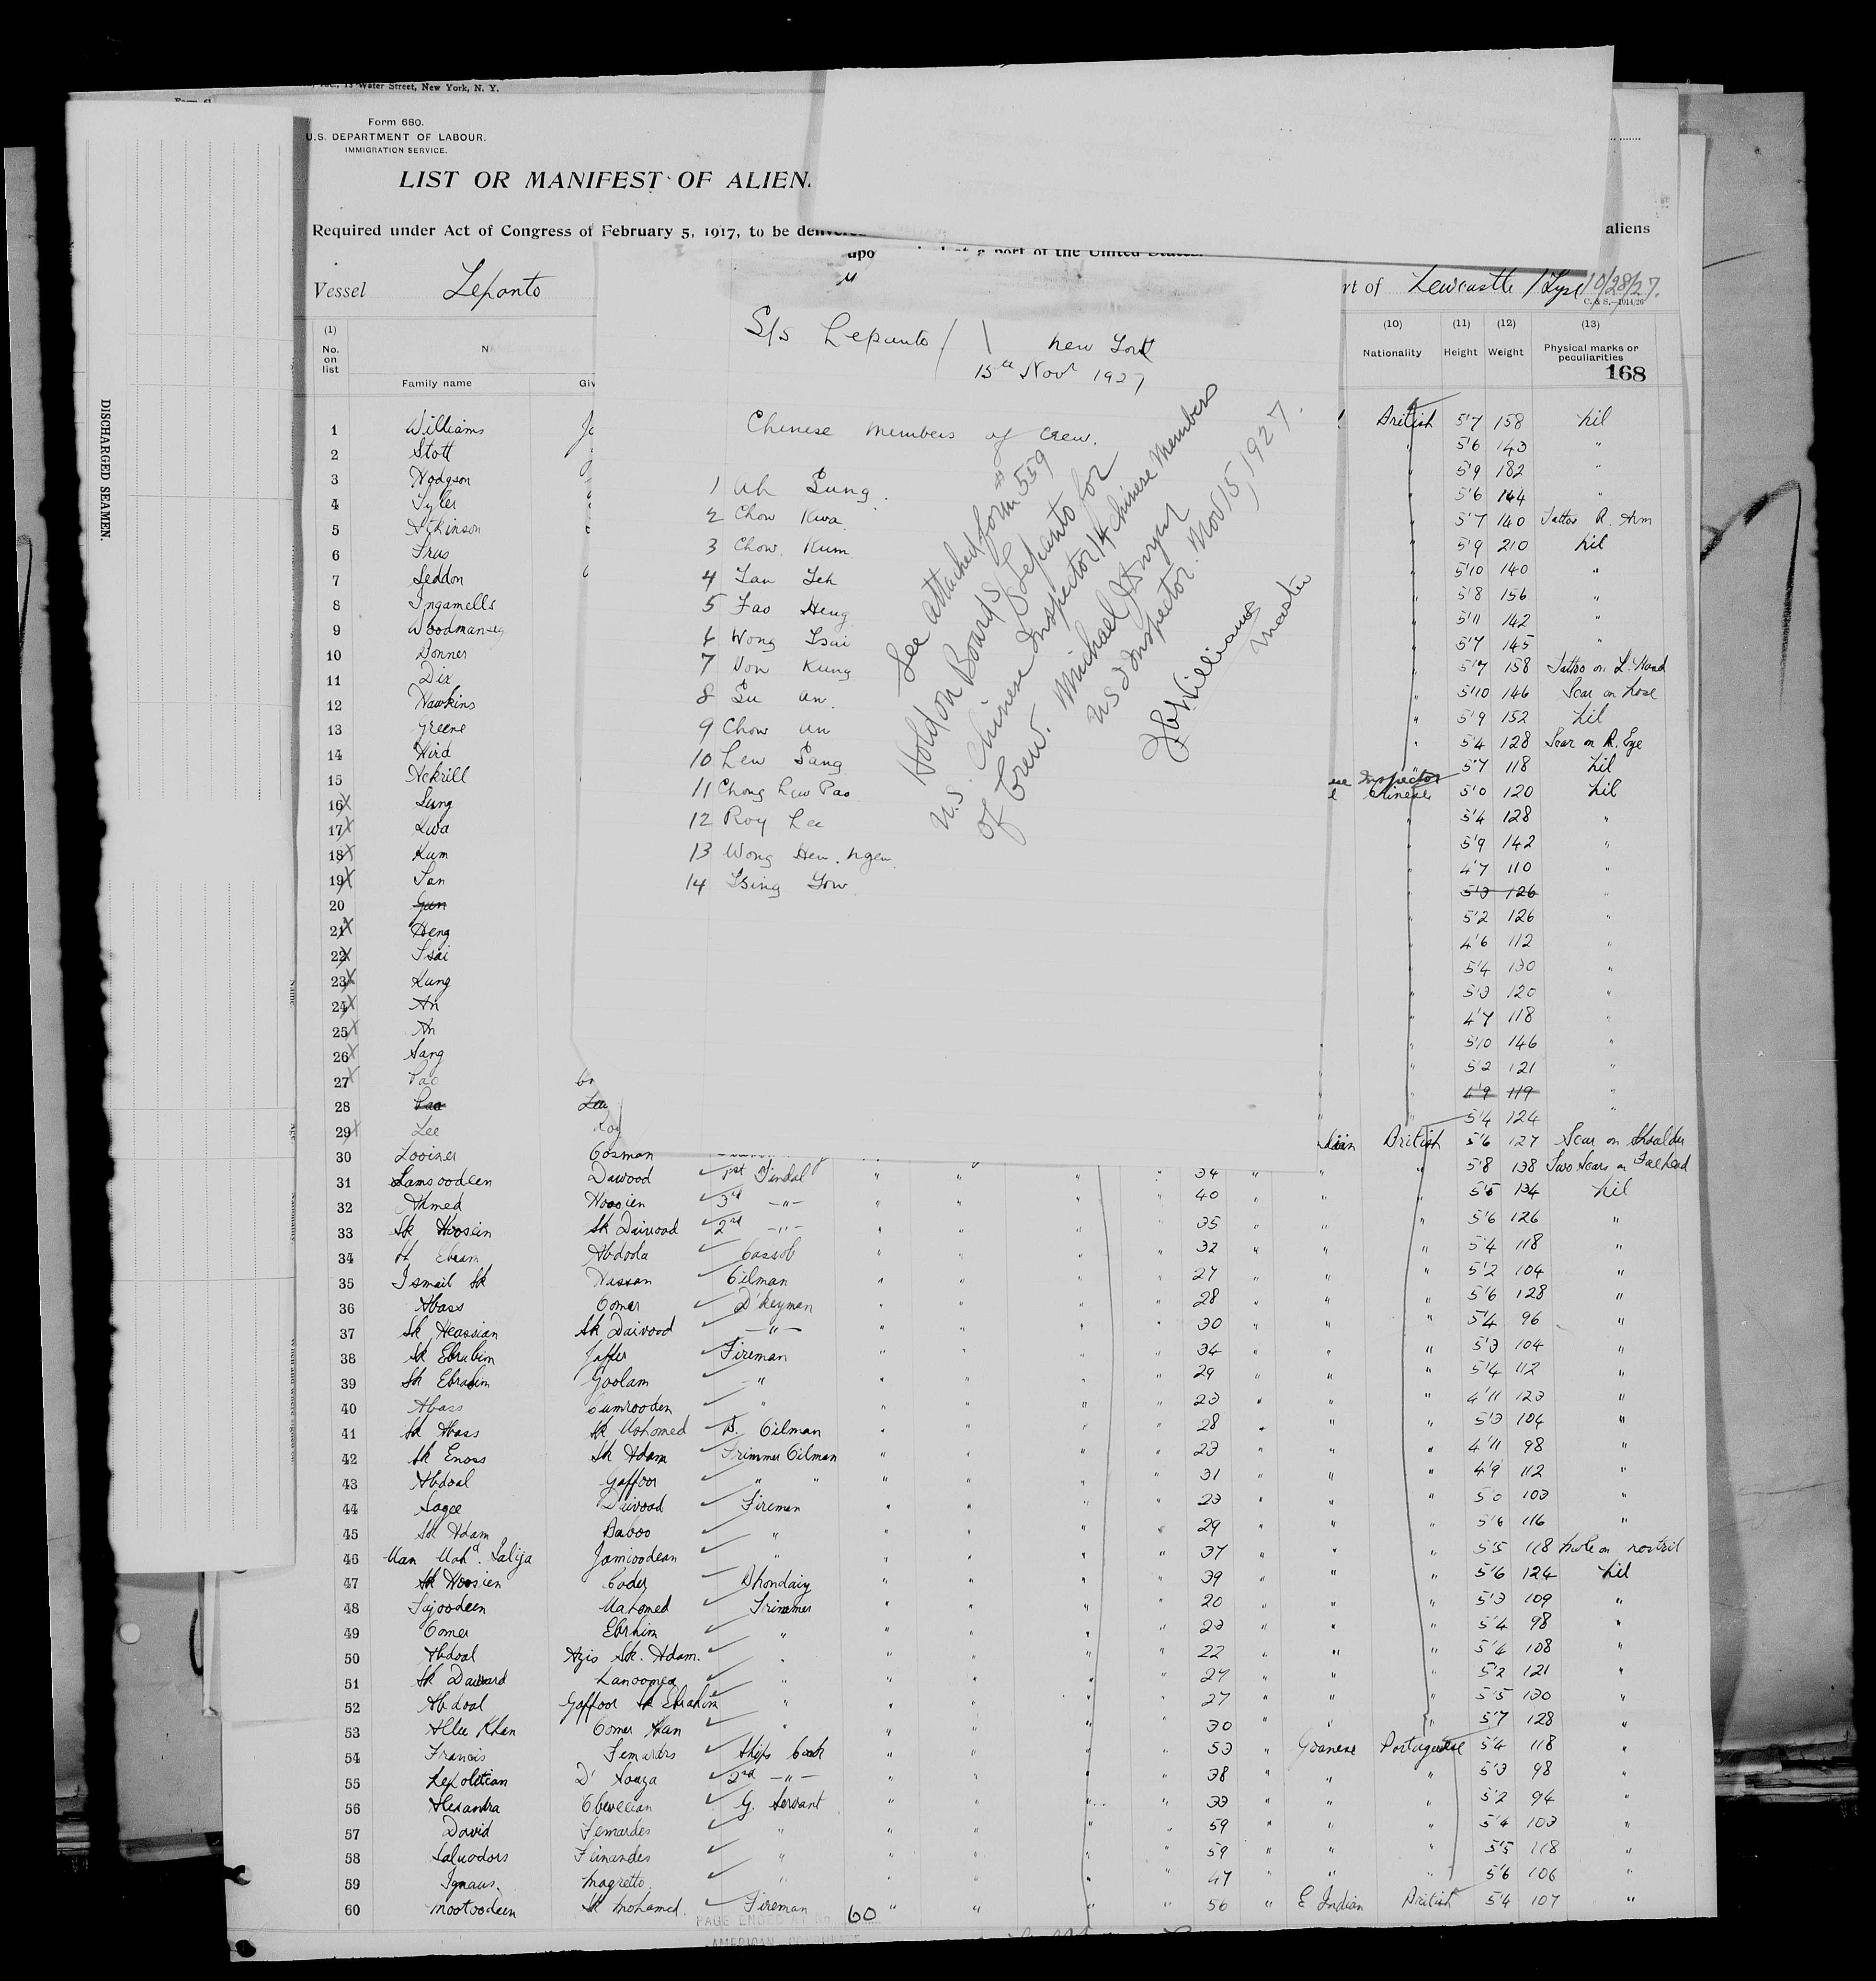 13 Water Street, New York, N. Y.
Form 680.
U.S. DEPARTMENT OF LABOUR.
IMMIGRATION SERVICE.
LIST OR MANIFEST OF ALIEN
Required under Act of Congress of February 5, 1917, to be aliens
port of the United States
Vessel Lepanto rt of Newcastle / Tyne 10/28/27.
C. & S.—1014/26
(1) (10) (11) (12) (13)
No. on list Family name Nationality Height Weight Physical marks or peculiarities
168
DISCHARGED SEAMEN.
S/s Lepanto / New York
15th Novr 1927
Chinese members of crew.
1 Ah Sung.
2 Chow Kwa.
3 Chow. Kum
4 Tan Teh
5 Fao Heng
6 Wong Tsai
7 Von Kung
8 Su An.
9 Chow An
10 Lew Sang
11 Chong Lew Pao
12 Roy Lee
13 Wong Hew. Ngew.
14 Tsing Yow.
See attached form # 559
Hold on Board SS Lepanto for
U.S. Chinese Inspector 14 Chinese Members
of Crew. Michael
US Inspector. Nov 15, 1927.
Williams
Master
1 Williams British 5'7 158 Nil
2 Stott " 5'6 143 "
3 Hodgson " 5'9 182 "
4 Tyler " 5'6 144 "
5 Atkinson " 5'7 140 Tattoo R. Arm
6 " 5'9 210 Nil
7 Seddon " 5'10 140 "
8 Ingamells " 5'8 156 "
9 Woodmansey " 5'11 142 "
10 Bonner " 5'7 145 "
11 Dix " 5'7 158 Tattoo on L. Hand
12 Hawkins " 5'10 146 Scar on Nose
13 Greene " 5'9 152 Nil
14 Hird " 5'4 128 Scar on R. Eye
15 Nekrill " 5'7 118 Nil
Inspector
16 Sung Chinese 5'0 120 Nil
17 Kwa " 5'4 128 "
18 Kum " 5'9 142 "
19 Tan " 4'7 110 "
20 Gun " 5'3 126 "
21 Heng " 5'2 126 "
22 Tsai " 4'6 112 "
23 Kung " 5'4 130 "
24 An " 5'3 120 "
25 An " 4'7 118 "
26 Sang " 5'10 146 "
27 Pao " 5'2 121 "
28 Pao " 4'9 119 "
29 Lee Roy " 5'4 124 "
30 Oosman British 5'6 127 Scar on Shoulder
31 Samsoodeen Dawood 1st Tindal 34 " 5'8 138 Two Scars on Forehead
32 Ahmed Hoosien 3rd —"— 40 " 5'5 134 Nil
33 Sk Hoosein Sk Dawood 2nd —"— 35 " 5'6 126 "
34 Ebram Abdoola Cassob 32 " 5'4 118 "
35 Ismail Sk Hassan Oilman 27 " 5'2 104 "
36 Abass Oomer D'keyman 28 " 5'6 128 "
37 Sk Heassian Sk Dawood —"— 30 " 5'4 96 "
38 Sk Ebrahim Jaffer Fireman 34 " 5'3 104 "
39 Sk Ebrahim Goolam " 29 " 5'4 112 "
40 Abass Cumrooden " 23 " 4'11 123 "
41 Sk Abass Sk Mahomed D. Oilman 28 " 5'3 104 "
42 Sk Enoss Sk Adam Trimmer Oilman 23 " 4'11 98 "
43 Abdoal Gaffoor " " 31 " 4'9 112 "
44 Sagee Dawood Fireman 23 " 5'0 103 "
45 Sk Adam Baboo " 29 " 5'6 116 "
46 Mahd. Salija Jamioodean " 37 " 5'5 118 hole on nostril
47 Sk Hoosien Cader Bhondaiy 39 " 5'6 124 Nil
48 Tajoodeen Mahomed Trimmer 20 " 5'3 109 "
49 Oomer Ebrhim " 23 " 5'4 98 "
50 Abdoal Azis Sk. Adam. " 22 " 5'4 108 "
51 Sk Dawood " 27 " 5'2 121 "
52 Abdoal Gaffoor Sk Ebrahim " 27 " 5'5 130 "
53 Allee Khan Oomer Khan " 30 " 5'7 128 "
54 Francis Fernardrs Ships Cook 53 " Goanese Portuguese 5'4 118 "
55 D' Souza 2nd —"— 38 " " " 5'3 98 "
56 Alexandra G. Servant 33 " " " 5'2 94 "
57 David Fernardes " 59 " " " 5'4 103 "
58 Salvadors Feinandes " 59 " " " 5'5 118 "
59 Ignaus. Magretto. " 47 " " " 5'6 106 "
60 Mootoodeen Sk Mohamed. Fireman 60 56 " E Indian British 5'4 107 "
PAGE ENDED AT No.
AMERICAN CONSULATE